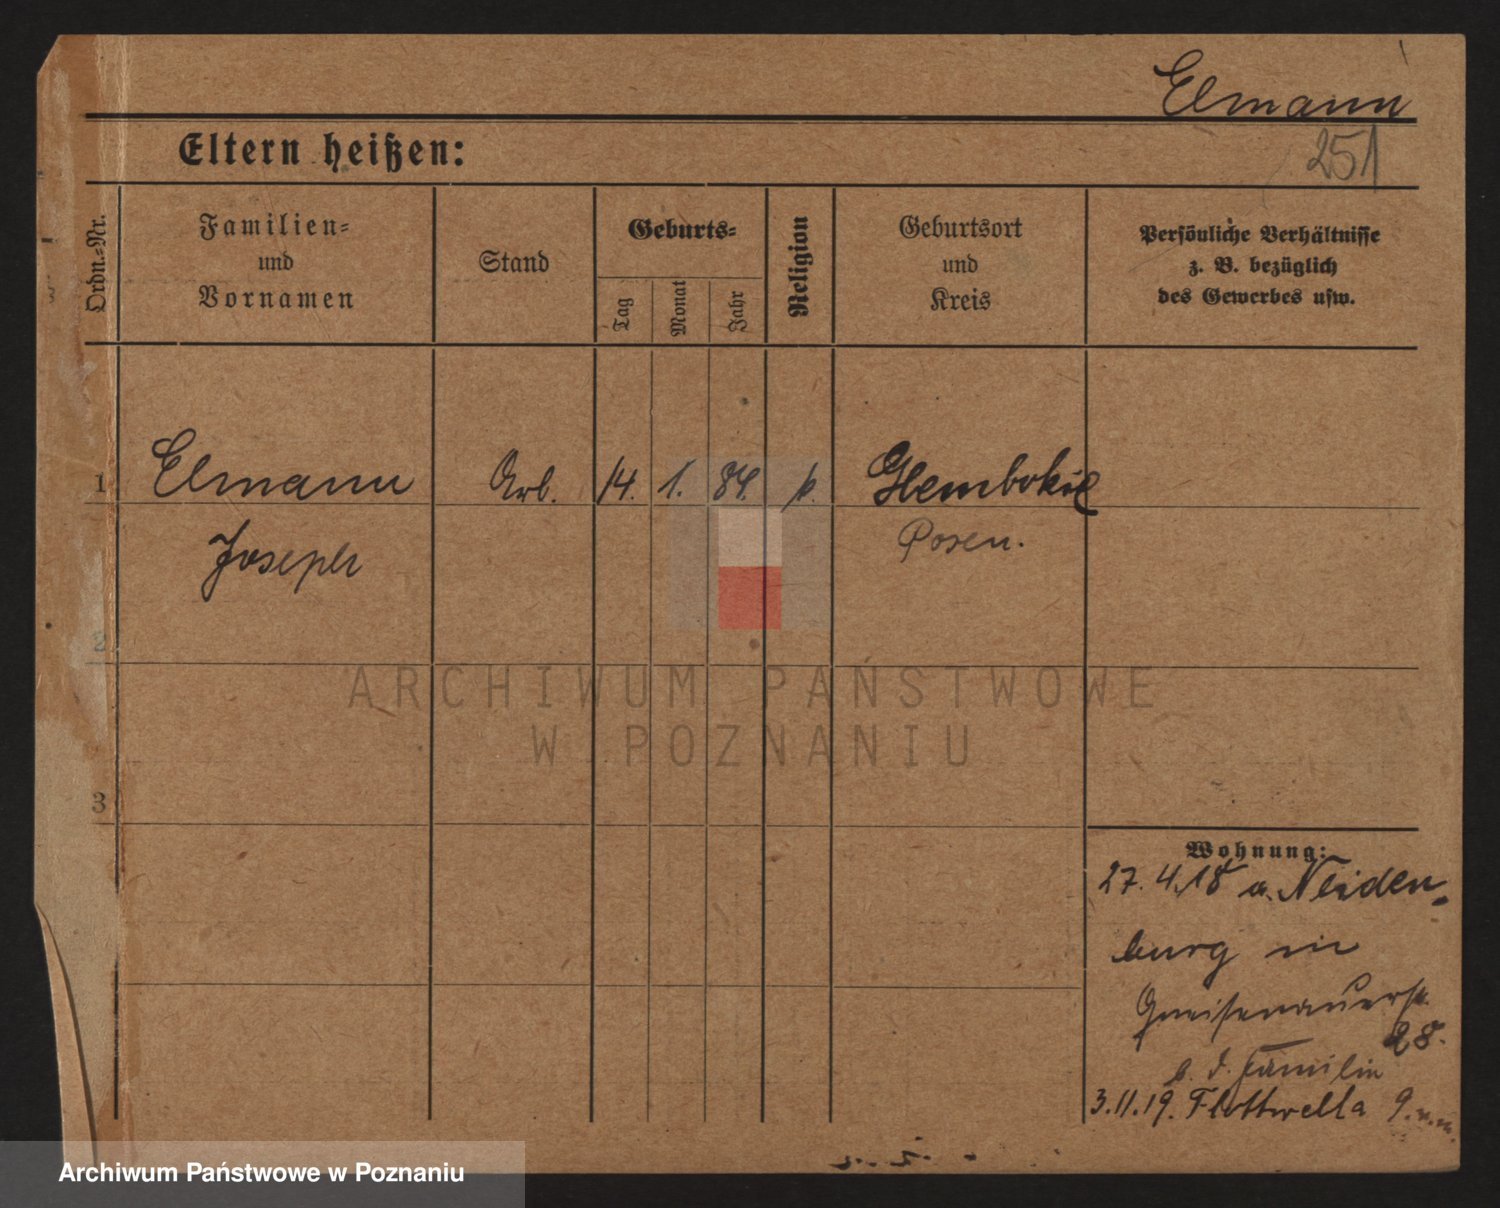 Elmann
251
Eltern heißen:
Ordn.-Nr.
Familien-
und
Vornamen
Stand
Geburts-
Tag
Monat
Jahr
Religion
Geburtsort
und
Kreis
Persönliche Verhältnisse
z. B. bezüglich
des Gewerbes usw.
1 Elmann Arb. 14. 1. 84. k. Glembokie
Joseph Posen.
2
ARCHIWUM PAŃSTWOWE
W POZNANIU
3
Wohnung:
27. 4. 18 a. Neiden-
burg in
Gneisenauerstr.
28.
b. d. Familie
3. 11. 19. Flottwella 9.
Archiwum Państwowe w Poznaniu